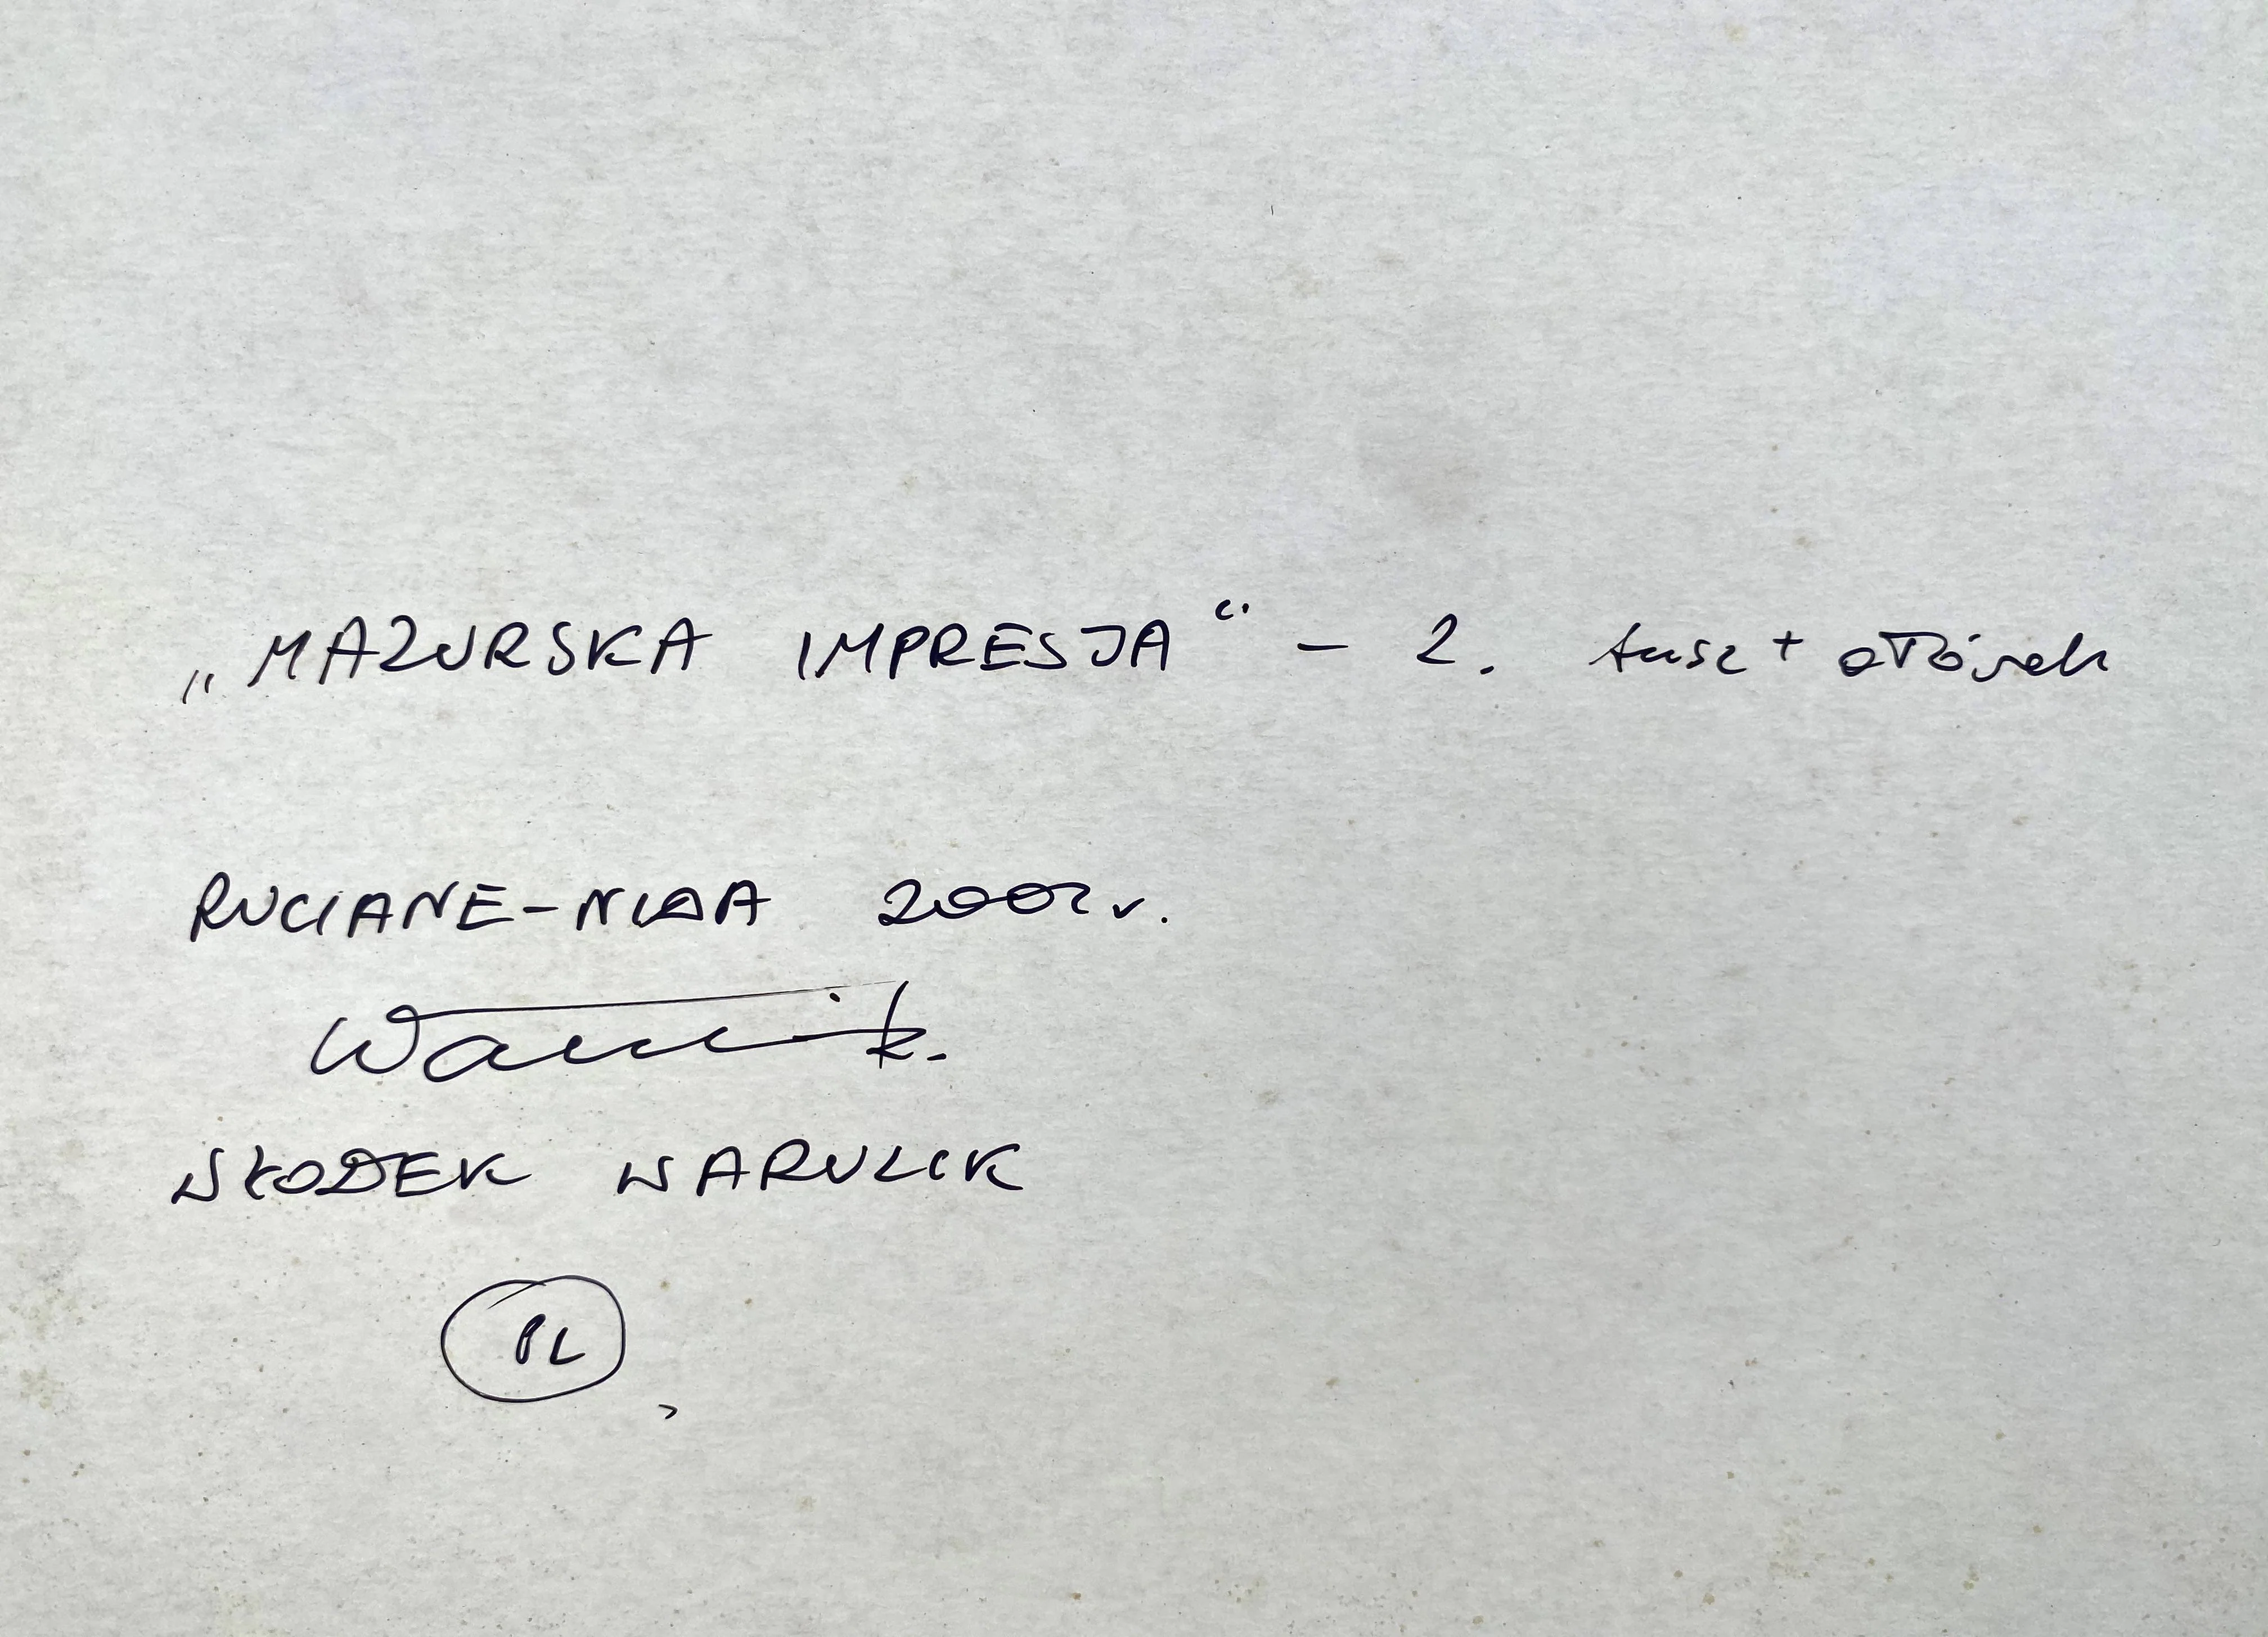 „MAZURSKA IMPRESJA" – 2. tusz + ołówek
RUCIANE-NIDA 2002 r.
Warulik.
WŁODEK WARULIK
PL